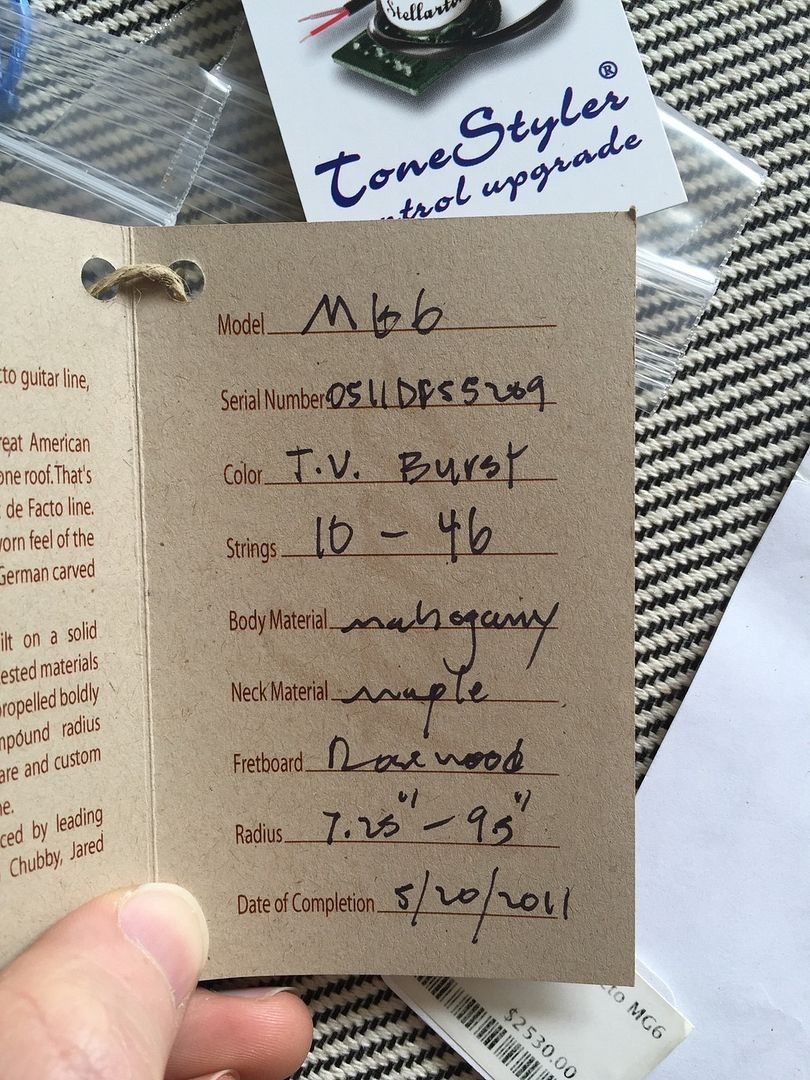 Stellarto
ToneStyler®
ntrol upgrade
to guitar line,
reat American
one roof. That's
de Facto line.
worn feel of the
German carved
ilt on a solid
ested materials
propelled boldly
mpound radius
are and custom
ne.
ced by leading
Chubby, Jared
Model MG6
Serial Number 0511DFS5209
Color T.V. Burst
Strings 10 - 46
Body Material mahogany
Neck Material maple
Fretboard Rosewood
Radius 7.25" - 9.5"
Date of Completion 5/20/2011
cto MG6
$2530.00